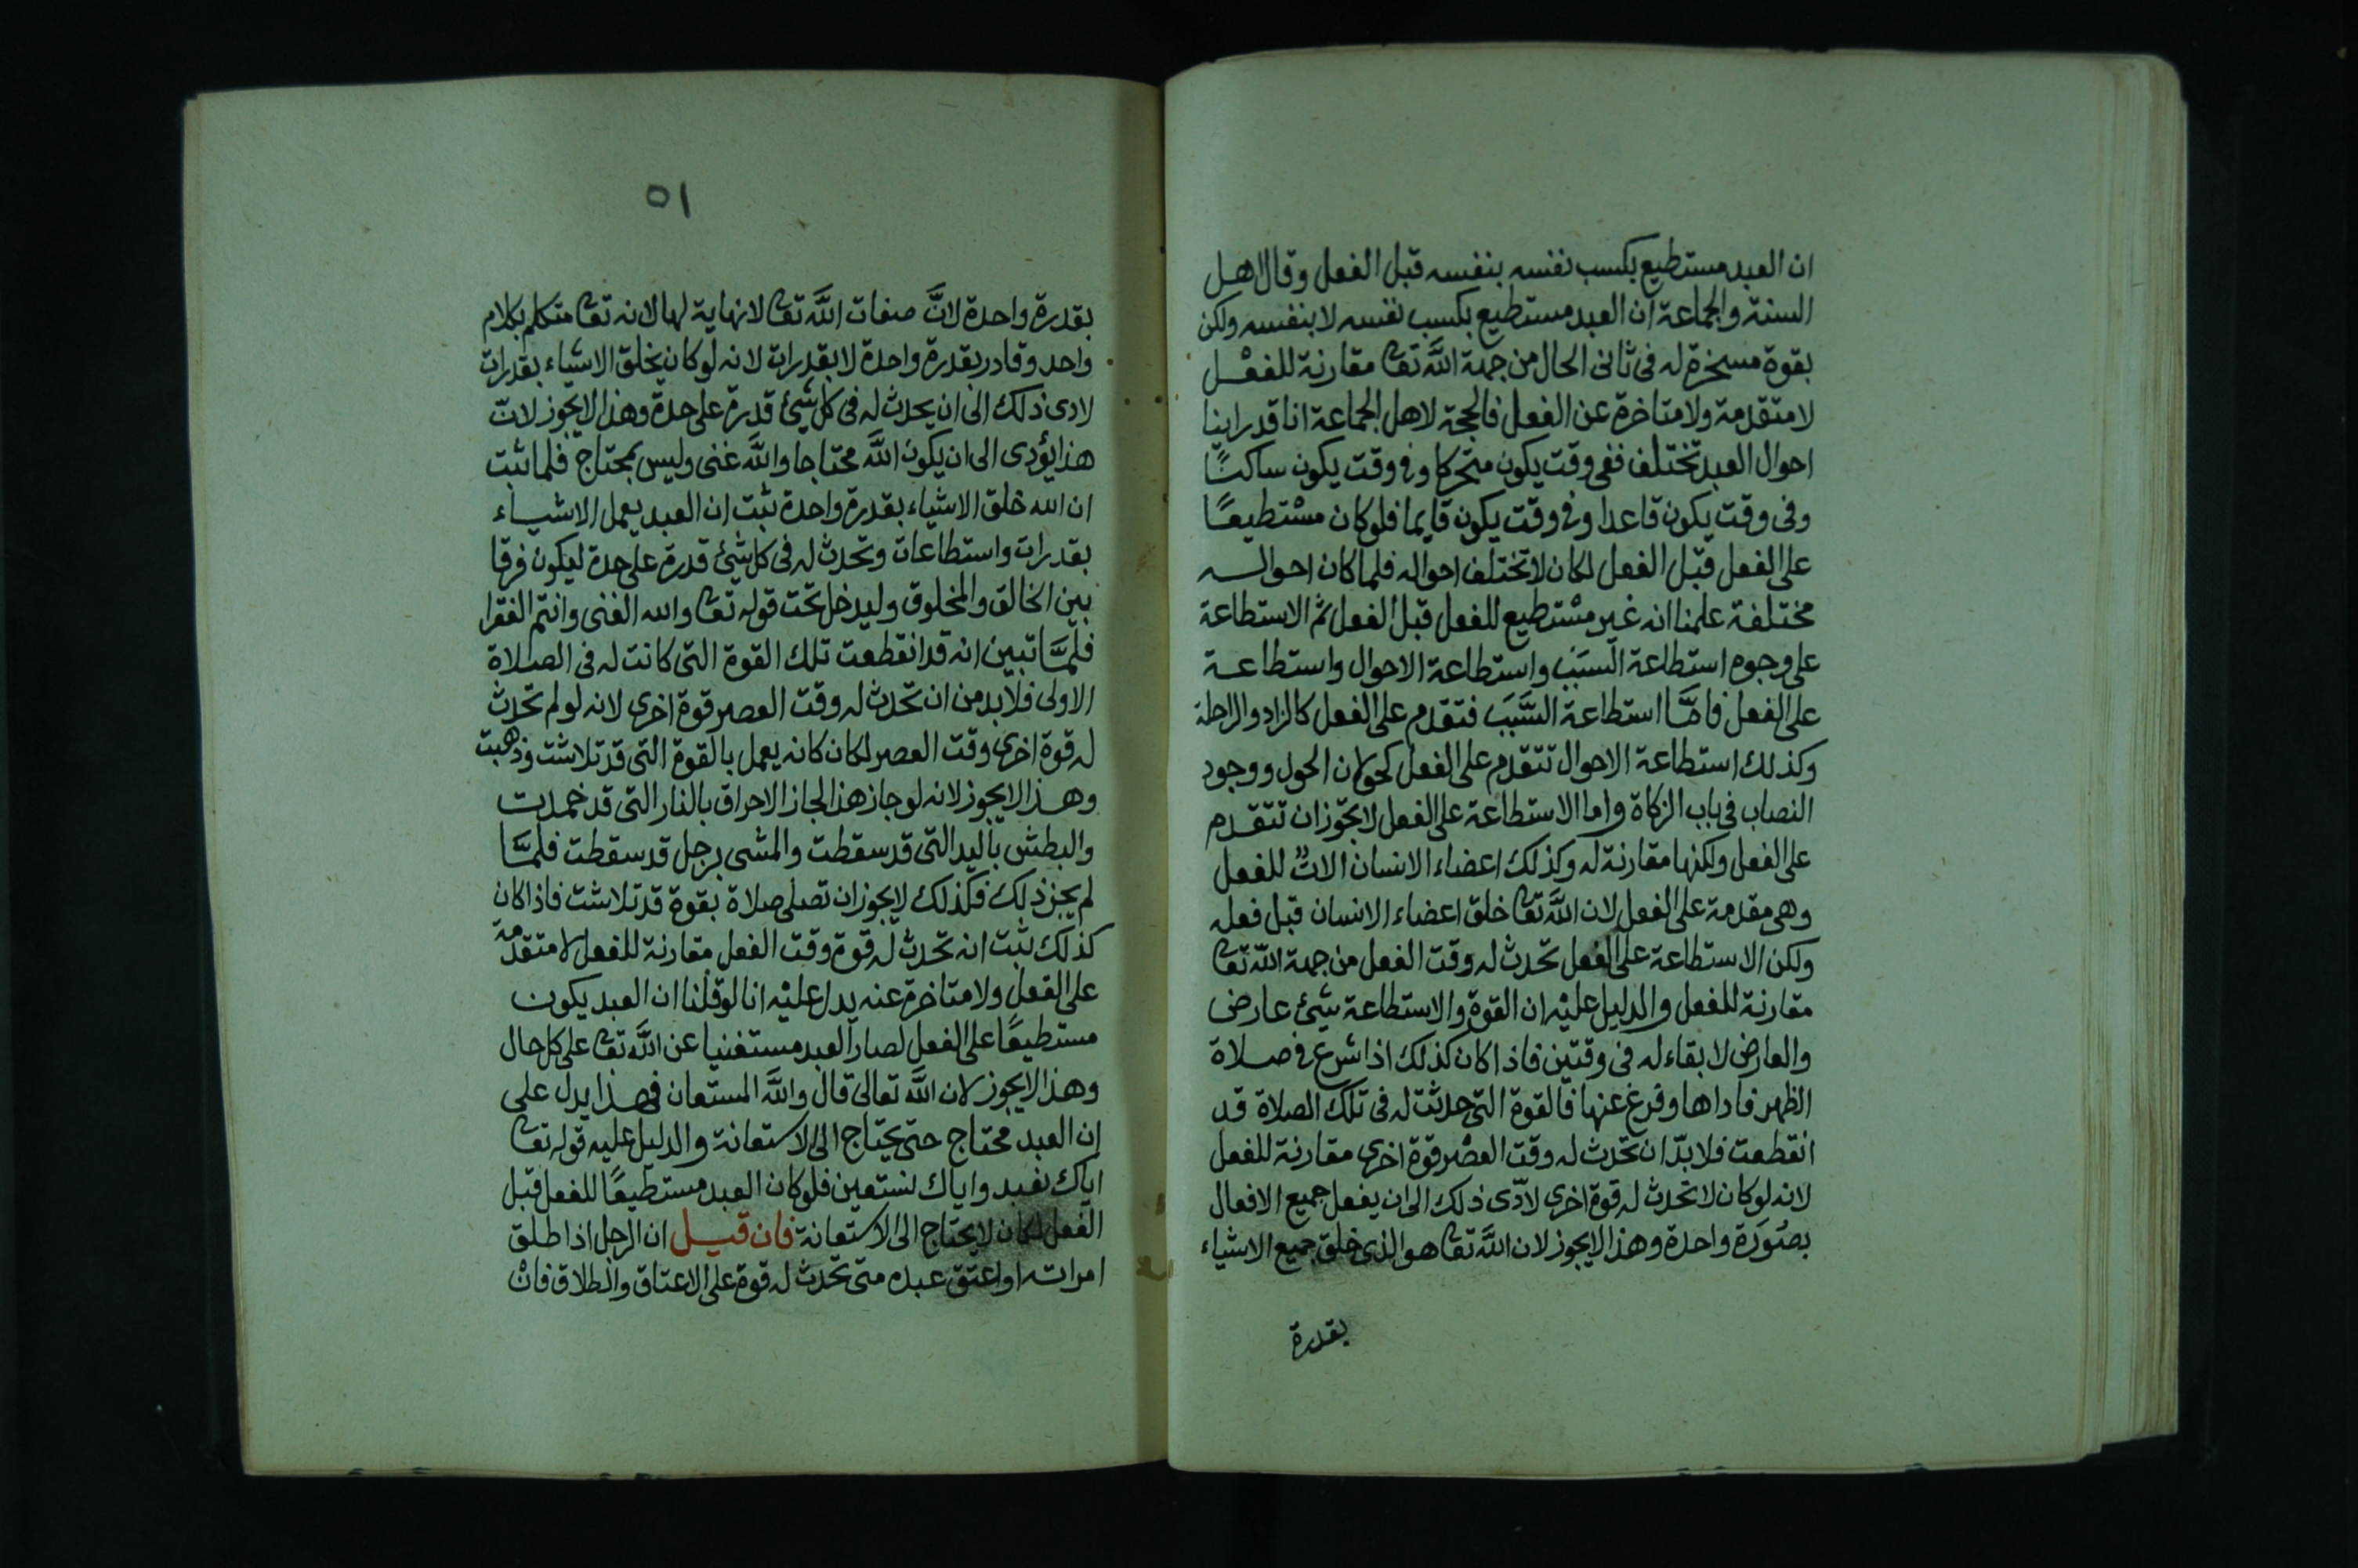 ان العبد مستطيع بكسب نفسه بنفسه قبل الفعل وقال اهل
السنة والجماعة ان العبد مستطيع بكسب نفسه لا بنفسه ولكن
بقوة مسخرة له فى ثانى الحال من جهة اللَّه تعا مقارنة للفعْل
لا متقدمة ولا متاخرة عن الفعل فالحجة لاهل الجماعة انا قد راينا
احوال العبد تختلف ففى وقت يكون متحركا وفى وقت يكون ساكنًا
وفى وقت يكون قاعدا وفى وقت يكون قايما فلو كان مسْتطيعًا
على الفعل قبْل الفعل لكان لا تختلف احواله فلما كان احواله
مختلفة علمنا انه غير مسْتطيع للفعل قبل الفعل ثم الاستطاعة
على وجوه استطاعة السبَب واستطاعة الاحوال واستطاعة
على الفعل فامَّا استطاعة السَّبَب فتقدم على الفعل كالزاد والراحلة
وكذلك استطاعة الاحوال تتقدم على الفعل كحولان الحول ووجود
النصاب فى باب الزكاة واما الاستطاعة على الفعل لا يجوز ان تتقدم
على الفعل ولكنها مقارنة له وكذلك اعضاء الانسان الاتٌ للفعل
وهى مقدمة على الفعل لان اللَّه تعا خلق اعضاء الانسان قبل فعله
ولكن الاستطاعة على الفعل تحدث له وقت الفعل من جهة اللّه تعا
مقارنة للفعل والدليل عليْه ان القوة والاستطاعة شئ عارض
والعارض لا بقاء له فى وقتين فاذا كان كذلك اذا شرع فى صلاة
الظهر فاداها وفرغ عنها فالقوة التى حدثت له فى تلك الصلاة قد
انقطعت فلا بدّ ان تحدث له وقت العصْر قوة اخرى مقارنة للفعل
لانه لو كان لا تحدث له قوة اخرى لادّى ذلك الى ان يفعل جميع الافعال
بصُورَة واحدة وهذا لا يجوز لان اللَّه تعا هو الذى خلق جميع الاشياء
بقدرة
٥١
بقدرة واحدة لانَّ صفات اللَّه تعا لا نهاية لها لانه تعا متكلم بكلام
واحد وقادر بقدرة واحدة لا بقدرات لانه لو كان يخلق الاشياء بقدرات
لادى ذلك الى ان يحدث له فى كل شئ قدرة على حدة وهذا لا يجوز لانّ
هذا يؤدى الى ان يكون اللَّه محتاجا واللَّه غنى وليس بمحتاج فلما ثبت
ان الله خلق الاشياء بقدرة واحدة ثبت ان العبد يعمل الاشياء
بقدرات واستطاعات وتحدث له فى كل شئ قدرة على حدة ليكون فرقا
بين الخالق والمخلوق وليدخل تحت قوله تعا والله الغنى وانتم الفقرا
فلمَّا تبين انه قد انقطعت تلك القوة التى كانت له فى الصلاة
الاولى فلا بد من ان تحدث له وقت العصر قوة اخرى لانه لو لم تحدث
له قوة اخرى وقت العصر لكان كانه يعمل بالقوة التى قد تلاشت وذهبت
وهذا لا يجوز لانه لو جاز هذا لجاز الاحراق بالنار التى قد خمدت
والبطش باليد التى قد سقطت والمشى برجل قد سقطت فلمَّا
لم يجز ذلك فكذلك لا يجوز ان تصلى صلاة بقوة قد تلاشت فاذا كان
كذلك ثبت انه تحدث له قوة وقت الفعل مقارنة للفعل لا متقدمة
على الفعل ولا متاخرة عنه يدل عليْه انا لو قلْنا ان العبد يكون
مستطيعًا على الفعل لصار العبد مستغنيا عن اللَّه تعا على كل حال
وهذا لا يجوز لان اللَّه تعالى قال واللَّه المستعان فهذا يدل على
ان العبد محتاج حتى يحتاج الى الاستعانة والدليل عليه قوله تعا
اياك نعبد واياك نستعين فلو كان العبد مستطيعًا للفعل قبل
الفعل لكان لا يحتاج الى الاستعانة فان قيل ان الرجل اذا طلق
امراته او اعتق عبده متى تحدث له قوة على الاعتاق والطلاق فانْ